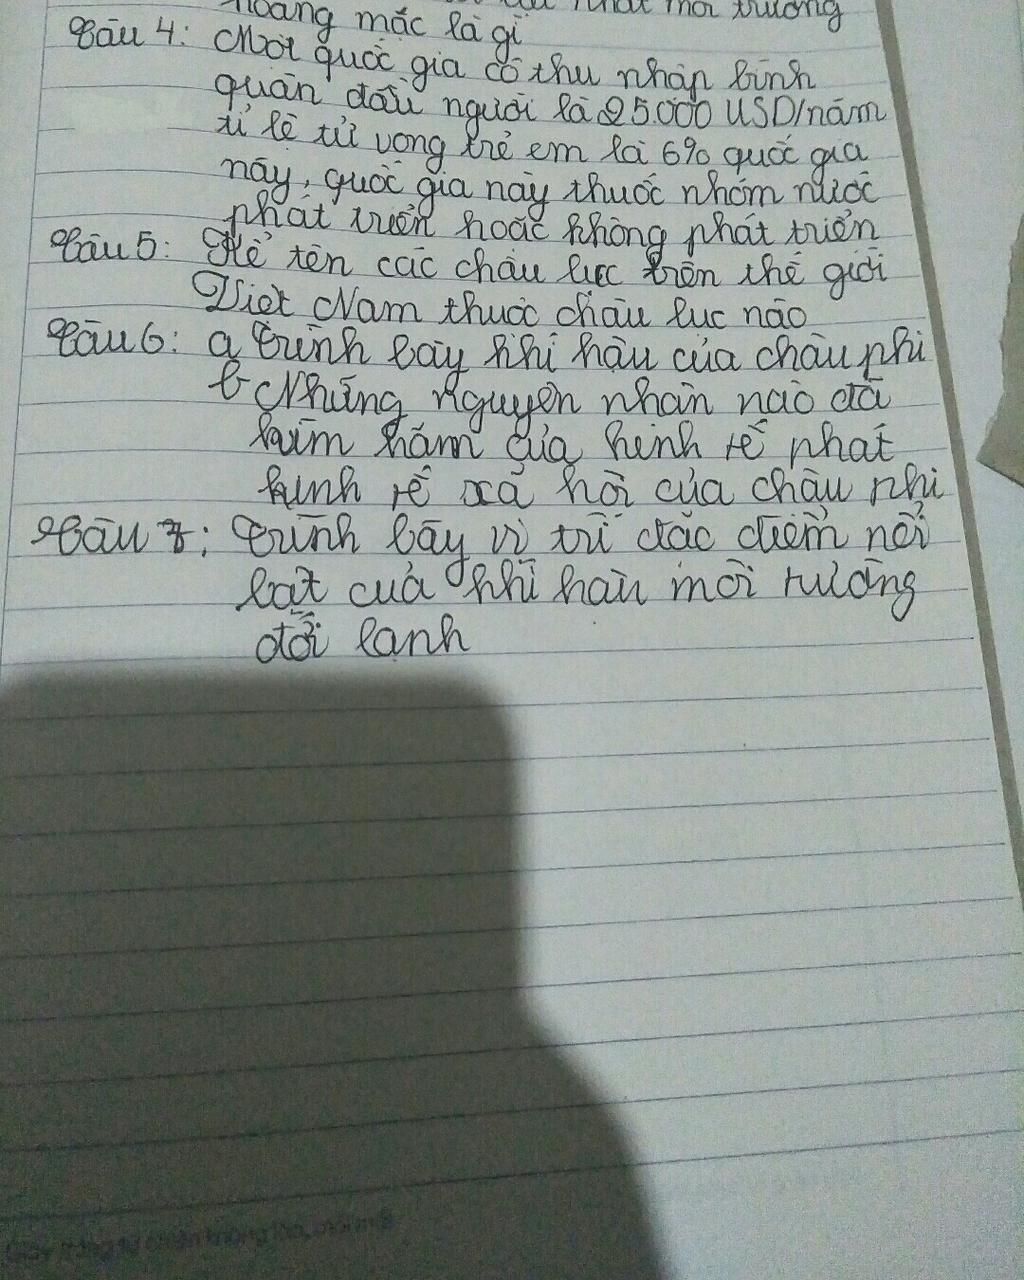 hoang mạc là gì
Câu 4: Một quốc gia có thu nhập bình
quân đầu người là 25.000 USD/năm
tỉ lệ tử vong trẻ em là 6% quốc gia
này, quốc gia này thuộc nhóm nước
phát triển hoặc không phát triển
Câu 5: Kể tên các châu lục trên thế giới
Việt Nam thuộc châu lục nào
Câu 6: a Trình bày khí hậu của châu phi
b Những nguyên nhân nào đã
kìm hãm của kinh tế phát
kinh tế xã hội của châu phi
Câu 7: Trình bày vị trí đặc điểm nổi
bật của khí hậu môi trường
đới lạnh